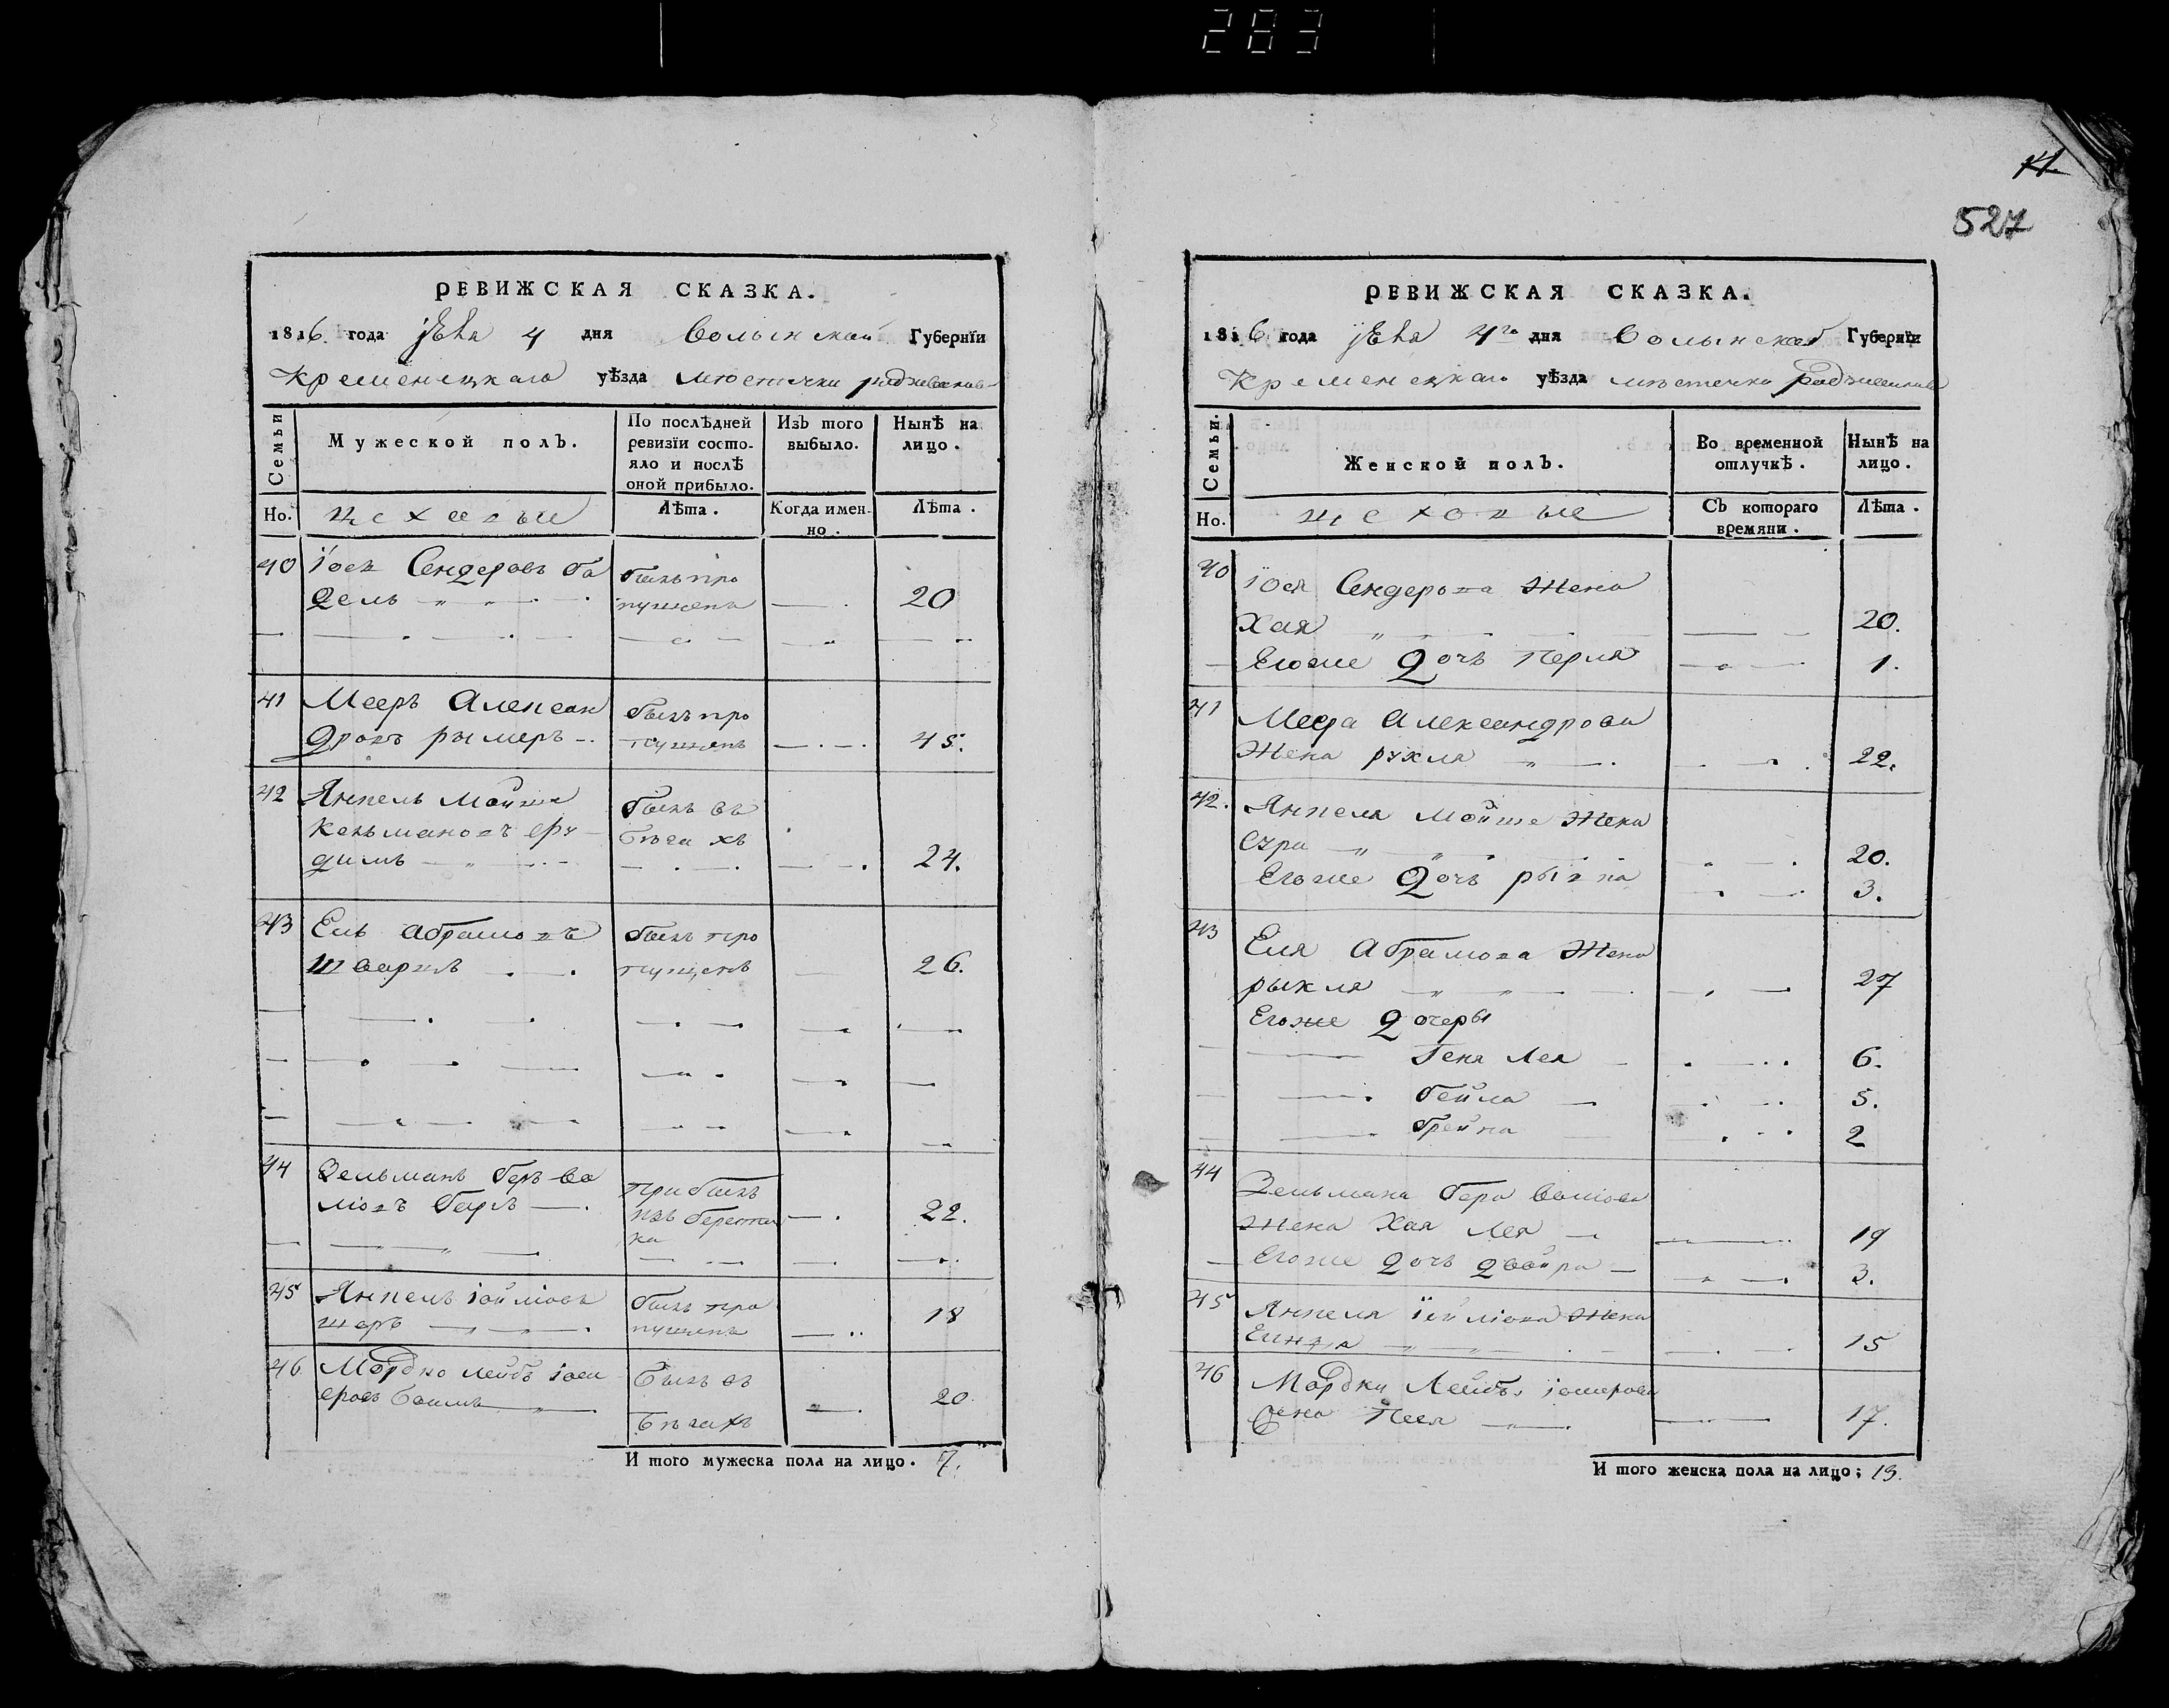 283
527
РЕВИЖСКАЯ СКАЗКА.
1816 года 4 дня Волынской Губернїи
Кременецкаго уѣзда местечка радзивилов
Семьи
Мужеской полъ.
По послѣдней ревизїи состояло и послѣ оной прибыло.
Изъ того выбыло.
Нынѣ на лицо.
Но.
цеховые
Лѣта.
Когда именно.
Лѣта.
40 Iося Сендеровъ ба былъ про
дель пущенъ 20
41 Мееръ Алексан былъ про
дровъ рымеръ пущенъ 45.
42 Янкель Мойше былъ въ
Кельмановъ фру бѣгахъ
димъ 24.
43 Ель Абрамовъ былъ про
Шварцъ пущенъ 26.
44 Зельманъ беръ во прибылъ
лiовъ изъ берестеч 22.
ка
45 Янкель былъ про
шеръ пущенъ 18
46 Мордко лейбъ былъ въ
еровъ бѣгахъ 20
И того мужеска пола на лицо. 7.
РЕВИЖСКАЯ СКАЗКА.
1816 года 4го дня Волынской Губернїи
Кременецкаго уѣзда местечка Радзивилов
Семьи.
Женской полъ.
Во временной отлучкѣ.
Нынѣ на лицо.
Но.
цеховые
Съ котораго времяни.
Лѣта.
40 Iося Сендерова Жена
Хая 20.
Егоже Дочь Перля 1.
41 Меера Александрова
Жена рухля 22.
42. Янкеля Мойше Жена
Сура 20.
Егоже Дочь рывка 3.
43 Еля Абрамова Жена
рыкля 27
Егоже Дочеры
Геня Лея 6.
бейла 5.
брейна 2
44 Зельмана бера Волiова
Жена Хая Лея 19
Егоже дочь двойра 3.
45 Янкеля Жена
15
46 Мордки Лейбы
Жена Песя 17.
И того женска пола на лицо; 13.